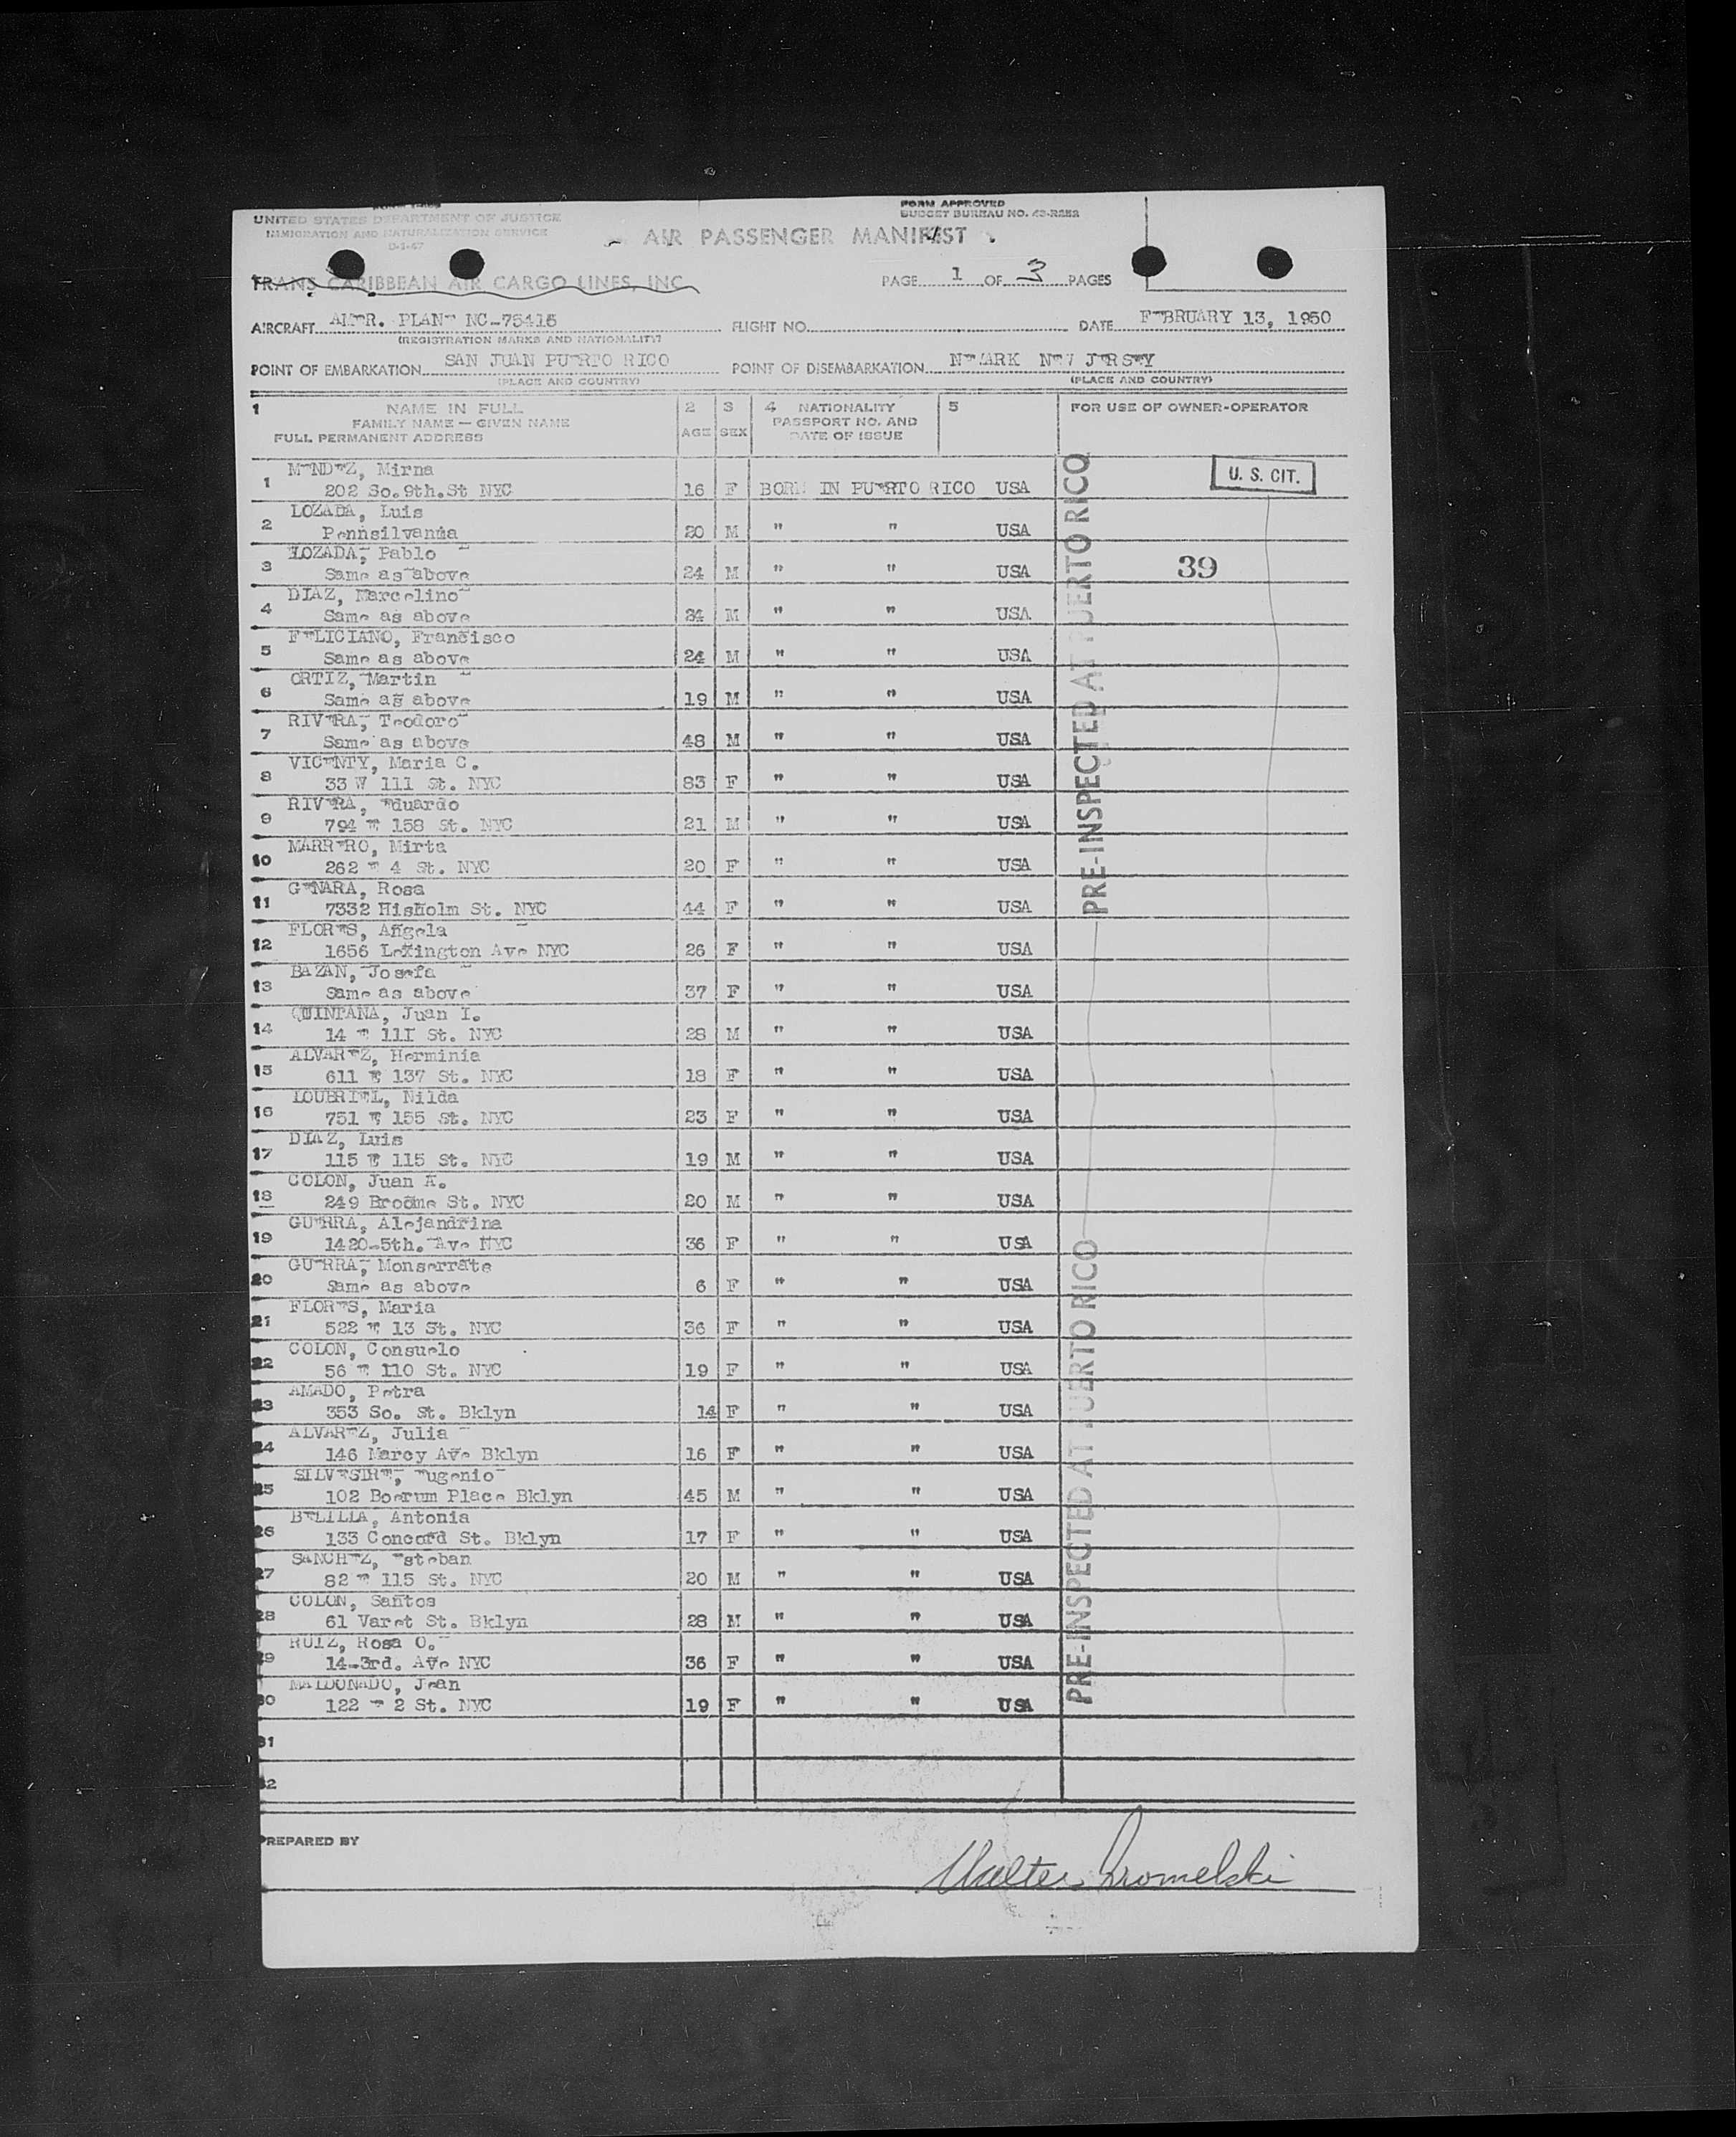 UNITED STATES DEPARTMENT OF JUSTICE
IMMIGRATION AND NATURALIZATION SERVICE
FORM APPROVED
BUDGET BUREAU NO. 43-R522
AIR PASSENGER MANIFEST
TRANS CARIBBEAN AIR CARGO LINES, INC.
PAGE 1 OF 3 PAGES
AIRCRAFT AMER. PLANE NC-75415 FLIGHT NO. DATE FEBRUARY 13, 1950
(REGISTRATION MARKS AND NATIONALITY)
POINT OF EMBARKATION SAN JUAN PUERTO RICO POINT OF DISEMBARKATION NEWARK NEW JERSEY
(PLACE AND COUNTRY) (PLACE AND COUNTRY)
1 NAME IN FULL 2 3 4 NATIONALITY 5 FOR USE OF OWNER-OPERATOR
FAMILY NAME — GIVEN NAME AGE SEX PASSPORT NO. AND
FULL PERMANENT ADDRESS DATE OF ISSUE
1 MENDEZ, Mirna U. S. CIT.
202 So. 9th. St NYC 16 F BORN IN PUERTO RICO USA
2 LOZADA, Luis
Pennsilvania 20 M " " USA
3 LOZADA, Pablo 39
Same as above 24 M " " USA
4 DIAZ, Marcelino
Same as above 24 M " " USA
5 FELICIANO, Francisco
Same as above 24 M " " USA
6 ORTIZ, Martin
Same as above 19 M " " USA
7 RIVERA, Teodoro
Same as above 48 M " " USA
8 VICENTY, Maria C.
33 W 111 St. NYC 83 F " " USA
9 RIVERA, Eduardo
794 E 158 St. NYC 21 M " " USA
10 MARRERO, Mirta
262 E 4 St. NYC 20 F " " USA
11 GENARA, Rosa
7332 Hisholm St. NYC 44 F " " USA
12 FLORES, Angela
1656 Lexington Ave NYC 26 F " " USA
13 BAZAN, Josefa
Same as above 37 F " " USA
14 QUINTANA, Juan I.
14 E 111 St. NYC 28 M " " USA
15 ALVAREZ, Herminia
611 E 137 St. NYC 18 F " " USA
16 LOUBRIEL, Nilda
751 E 155 St. NYC 23 F " " USA
17 DIAZ, Luis
115 E 115 St. NYC 19 M " " USA
18 COLON, Juan A.
249 Broome St. NYC 20 M " " USA
19 GUERRA, Alejandrina
1420-5th. Ave NYC 36 F " " USA
20 GUERRA, Monserrate
Same as above 6 F " " USA
21 FLORES, Maria
522 E 13 St. NYC 36 F " " USA
22 COLON, Consuelo
56 E 110 St. NYC 19 F " " USA
23 AMADO, Petra
353 So. St. Bklyn 14 F " " USA
24 ALVAREZ, Julia
146 Marcy Ave Bklyn 16 F " " USA
25 SILVESTRE, Eugenio
102 Boerum Place Bklyn 45 M " " USA
26 BELILLA, Antonia
133 Concord St. Bklyn 17 F " " USA
27 SANCHEZ, Esteban
82 E 115 St. NYC 20 M " " USA
28 COLON, Santos
61 Varet St. Bklyn 28 M " " USA
29 RUIZ, Rosa O.
14-3rd. Ave NYC 36 F " " USA
30 MALDONADO, Jean
122 E 2 St. NYC 19 F " " USA
31
32
PRE-INSPECTED AT PUERTO RICO
PRE-INSPECTED AT PUERTO RICO
PREPARED BY
Walter